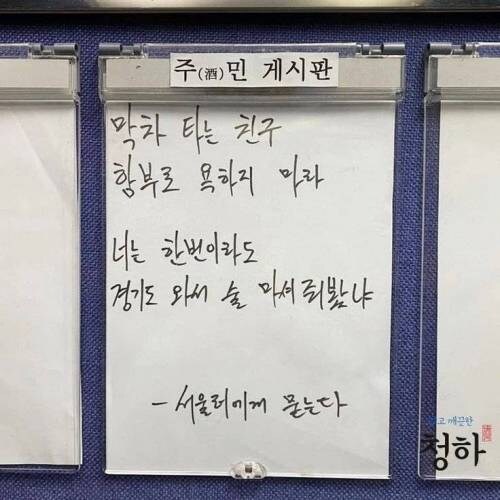 주(酒)민 게시판
막차 타는 친구
함부로 욕하지 마라
너는 한번이라도
경기도 와서 술 마셔 줘봤냐
-서울러에게 묻는다
고 깨끗한
청하